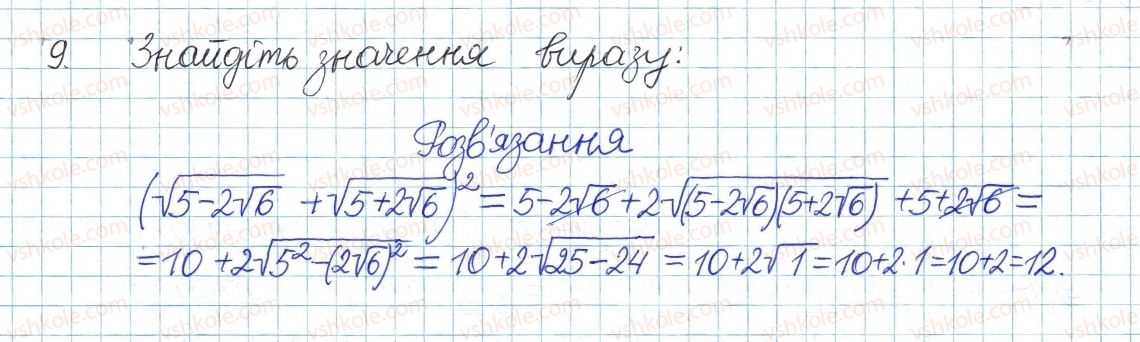 9. Знайдіть значення виразу:
Розв'язання
(√(5-2√6) + √(5+2√6))² = 5-2√6 + 2√((5-2√6)(5+2√6)) + 5+2√6 =
= 10 + 2√(5²-(2√6)²) = 10+2√(25-24) = 10+2√1 = 10+2·1 = 10+2 = 12.
vshkole.com